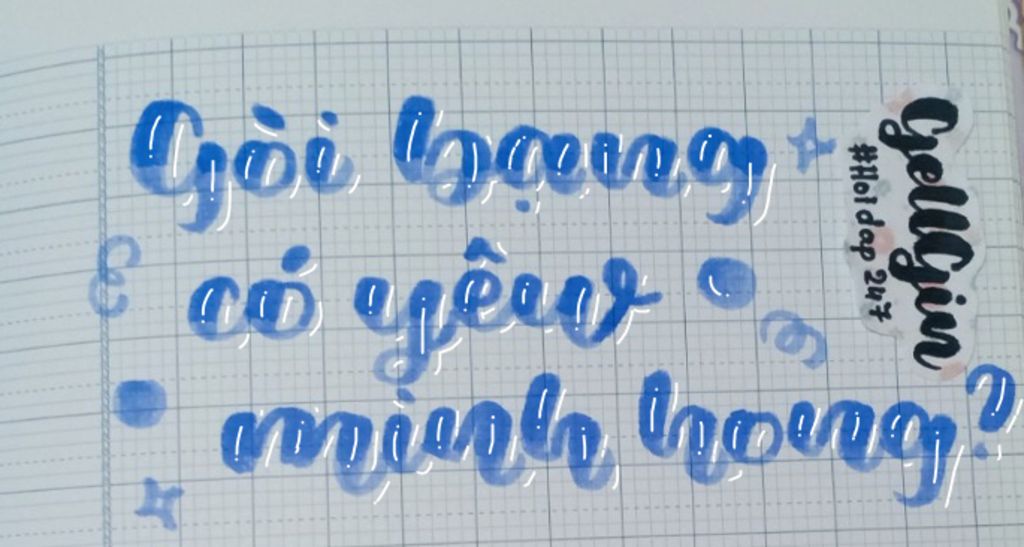 Gòi bạng
có yêu
mình hong?
GellGin
#Hoidap247